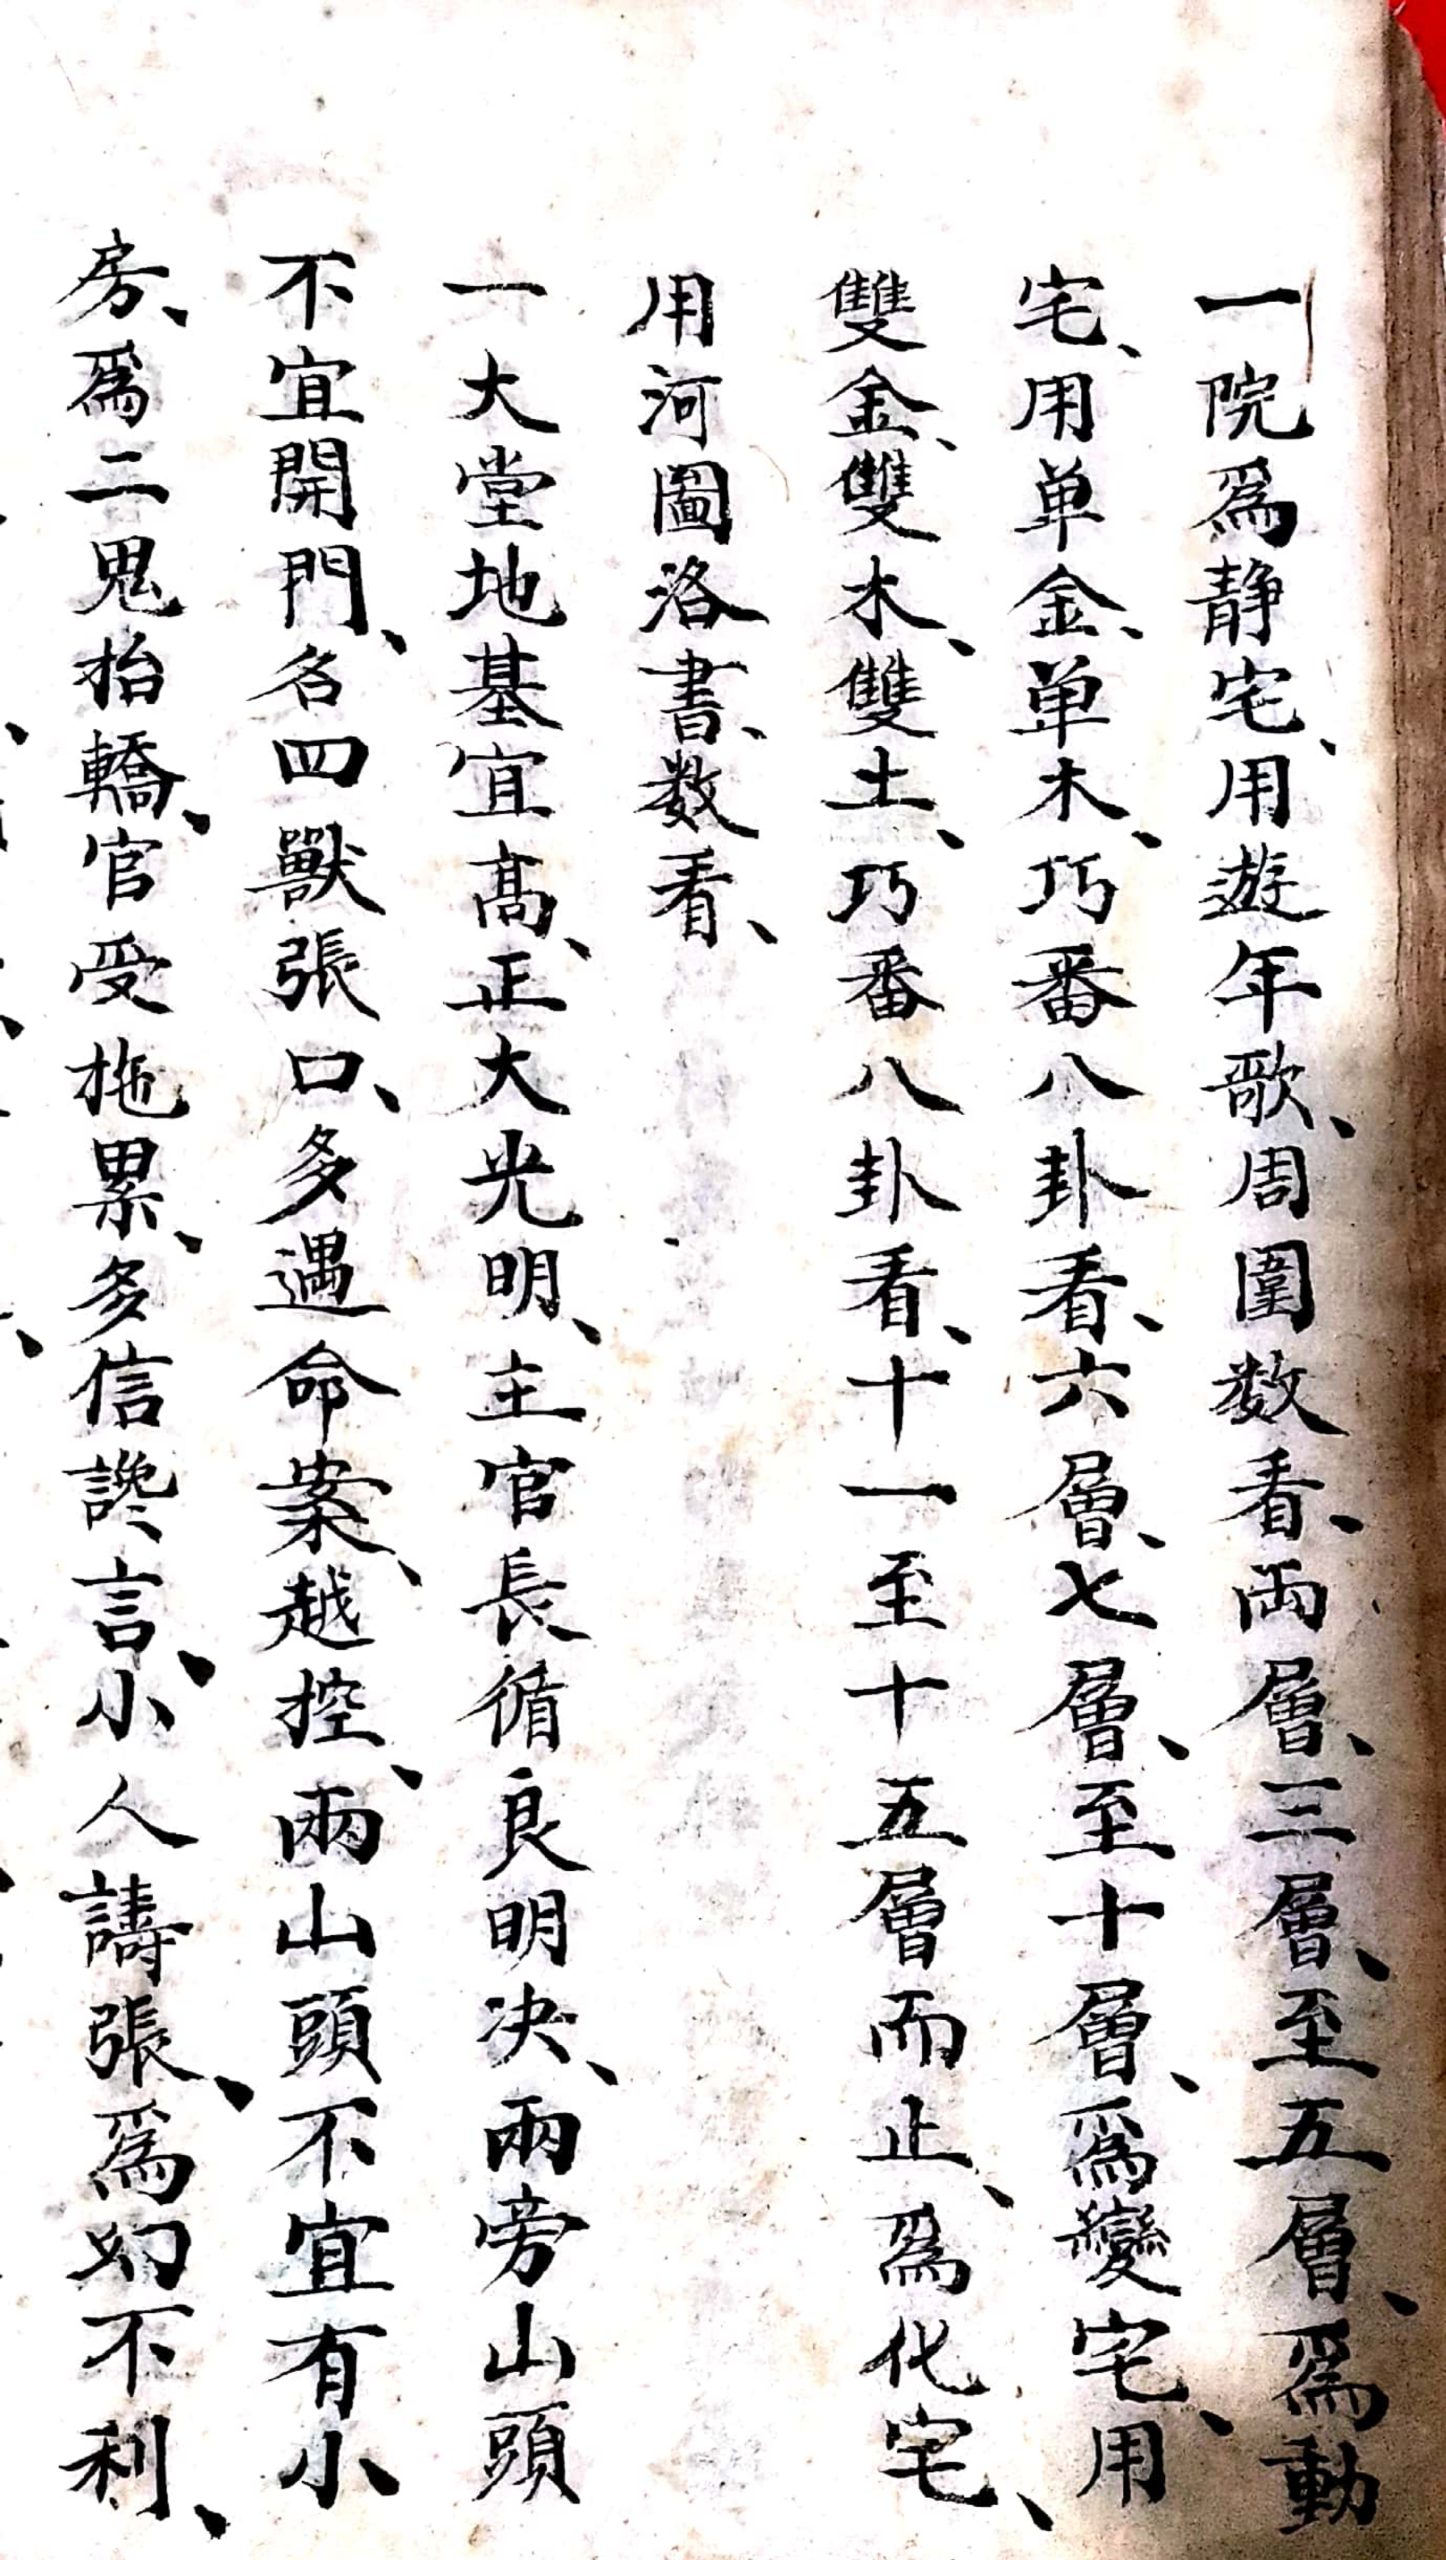 一院爲静宅、用遊年歌、周圍数看、両層、三層、至五層、爲動
宅、用单金、单木、巧番八卦看、六層、七層、至十層、爲變宅、用
雙金、雙木、雙土、巧番八卦看、十一至十五層而止、爲化宅、
用河圖洛書、数看、
一大堂地基宜高、正大光明、主官長循良明决、兩旁山頭
不宜開門、名四獸張口、多遇命案、越控、兩山頭不宜有小
房、爲二鬼抬轎、官受拖累、多信讒言、小人譸張、爲幻不利、